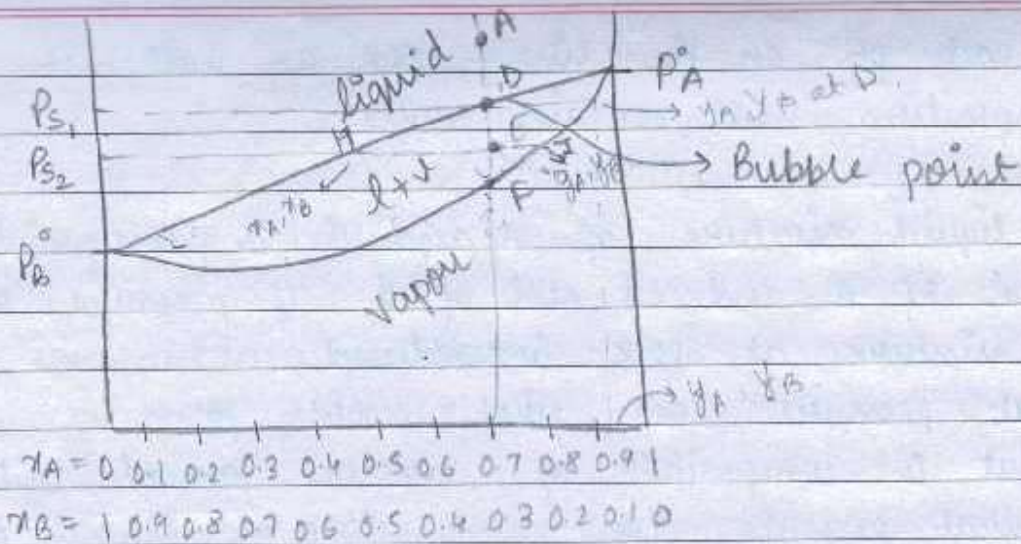 A
liquid
P°A
D
PS1
yA, yB at D.
H
C
PS2
→ Bubble point
xA, xB
l + v
F
yA, yB
P°B
vapou
→ yA, yB
xA = 0 0.1 0.2 0.3 0.4 0.5 0.6 0.7 0.8 0.9 1
xB = 1 0.9 0.8 0.7 0.6 0.5 0.4 0.3 0.2 0.1 0